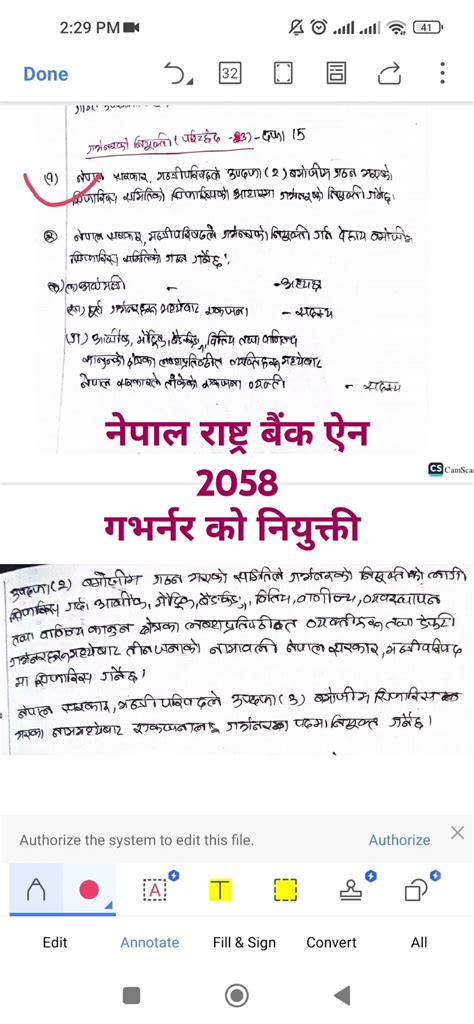 2:29 PM
41
Done
32
गभर्नरको नियुक्ती (परिच्छेद -3) - दफा 15
(१) नेपाल सरकार, मन्त्रीपरिषदले उपदफा (२) बमोजीम गठन भएको
सिफारिस समितिको सिफारिसको आधारमा गभर्नरको नियुक्ती गर्नेछ।
नेपाल सरकार, मन्त्रीपरिषदले गभर्नरको नियुक्ती गर्न देहाय बमोजीम
सिफारिस समितिको गठन गर्नेछ।
(क) अर्थमन्त्री - - अध्यक्ष
(ख) पूर्व गभर्नरहरु मध्येबाट एकजना - सदस्य
(ग) आर्थीक, मौद्रिक, बैंकिङ, वित्तिय तथा वाणिज्य
कानुनको क्षेत्रका लब्धप्रतिष्ठीत व्यक्तिहरु मध्येबाट
नेपाल सरकारले तोकेको एकजना व्यक्ती - सदस्य
नेपाल राष्ट्र बैंक ऐन
CS CamSca
2058
गभर्नर को नियुक्ती
उपदफा (२) बमोजीम गठन भएको समितिले गभर्नरको नियुक्तीको लागी
सिफारिस गर्दा आर्थीक, मौद्रिक, बैंकिङ, वित्तिय, वाणीज्य, व्यवस्थापन
तथा वाणिज्य कानुन क्षेत्रका लब्धप्रतिष्ठीत व्यक्तीहरु तथा डेपुटी
गभर्नरहरु मध्येबाट तीन जनाको नामावली नेपाल सरकार, मन्त्रीपरिषद
मा सिफारिस गर्नेछ।
नेपाल सरकार, मन्त्रीपरिषदले उपदफा (३) बमोजीम सिफारिस
भएका नाममध्येबाट एकजनालाई गभर्नरका पदमा नियुक्त गर्नेछ।
Authorize the system to edit this file.
Authorize
A
T
Edit
Annotate
Fill & Sign
Convert
All